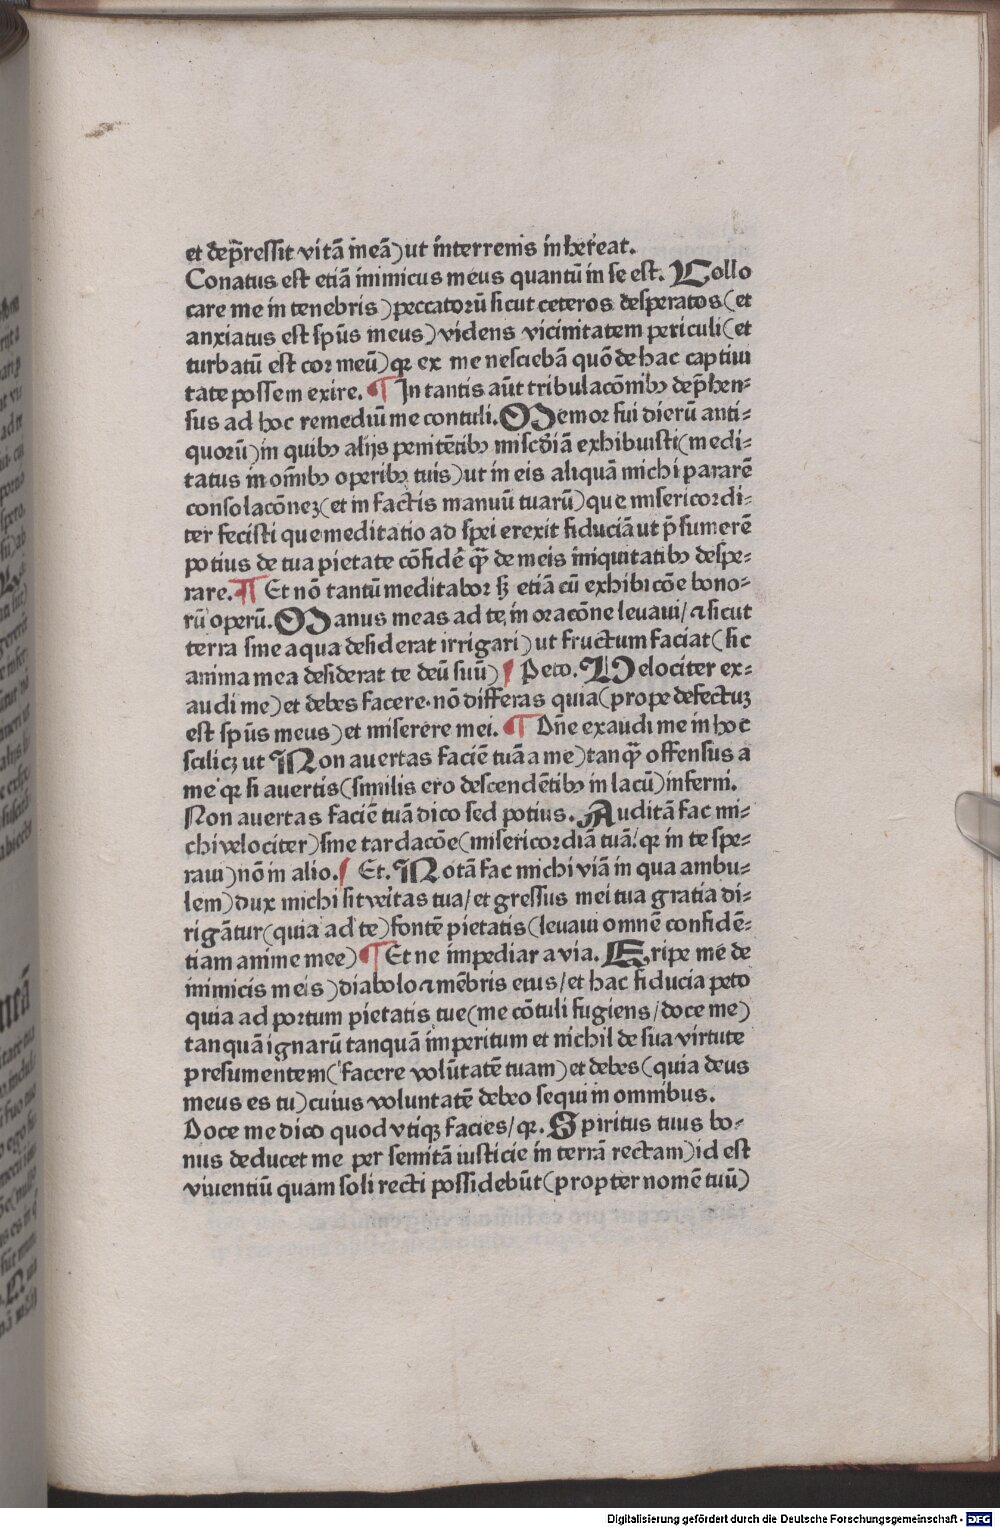 et dep̄ressit vitā meā)ut interrenis inhereat.
Conatus est etiā inimicus meus quantū in se est. Collo
care me in tenebris)peccatorū sicut ceteros desperatos(et
anxiatus est sp̄us meus)videns vicinitatem periculi(et
turbatū est cor meū)qꝛ ex me nesciebā quō de hac captiui
tate possem exire. ¶ In tantis aūt tribulacōnibꝰ dep̄hen⸗
sus ad hoc remediū me contuli. Memor fui dierū anti⸗
quorū)in quibꝰ alijs penitētibꝰ misc̄diā exhibuisti(medi⸗
tatus in om̄ibꝰ operibꝰ tuis)ut in eis aliquā michi pararē
consolacōneꝫ(et in factis manuū tuarū)que misericordi⸗
ter fecisti que meditatio ad spei erexit fiduciā ut p̄sumerē
potius de tua pietate cōfidē qꝫ̄ de meis iniquitatibꝰ despe⸗
rare. ¶ Et nō tantū meditabor sꝫ etiā cū exhibicōe bono⸗
rū operū. Manus meas ad te, in oracōne leuaui/ ⁊ sicut
terra sine aqua desiderat irrigari)ut fructum faciat(sic
anima mea desiderat te deū suū) Peto. Velociter ex⸗
audi me)et debes facere·nō differas quia(prope defectuꝫ
est sp̄us meus)et miserere mei. ¶ Dn̄e exaudi me in hoc
scilicꝫ ut Non auertas faciē tuā a me)tanqꝫ̄ offensus a
me qꝛ si auertis(similis ero descendētibꝰ in lacū)inferni.
Non auertas faciē tuā dico sed potius. Auditā fac mi⸗
chi velociter)sine tardacōe(misericordiā tuā/ qꝛ in te spe⸗
raui)nō in alio. Et. Notā fac michi viā in qua ambu⸗
lem)dux michi sit veritas tua/et gressus mei tua gratia di⸗
rigātur(quia ad te)fontē pietatis(leuaui omnē confidē⸗
tiam anime mee) ¶ Et ne impediar a via. Eripe me de
inimicis meis)diabolo ⁊ mēbris eius/et hac fiducia peto
quia ad portum pietatis tue(me cōtuli fugiens/doce me)
tanquā ignarū tanquā imperitum et nichil de sua virtute
presumentem(facere volūtatē tuam)et debes(quia deus
meus es tu)cuius voluntatē debeo sequi in omnibus.
Doce me dico quod vtiqꝫ facies/qꝛ. Spiritus tuus bo⸗
nus deducet me per semitā iusticie in terrā rectam)id est
viuentiū quam soli recti possidebūt(propter nomē tuū)
Digitalisierung gefördert durch die Deutsche Forschungsgemeinschaft - DFG